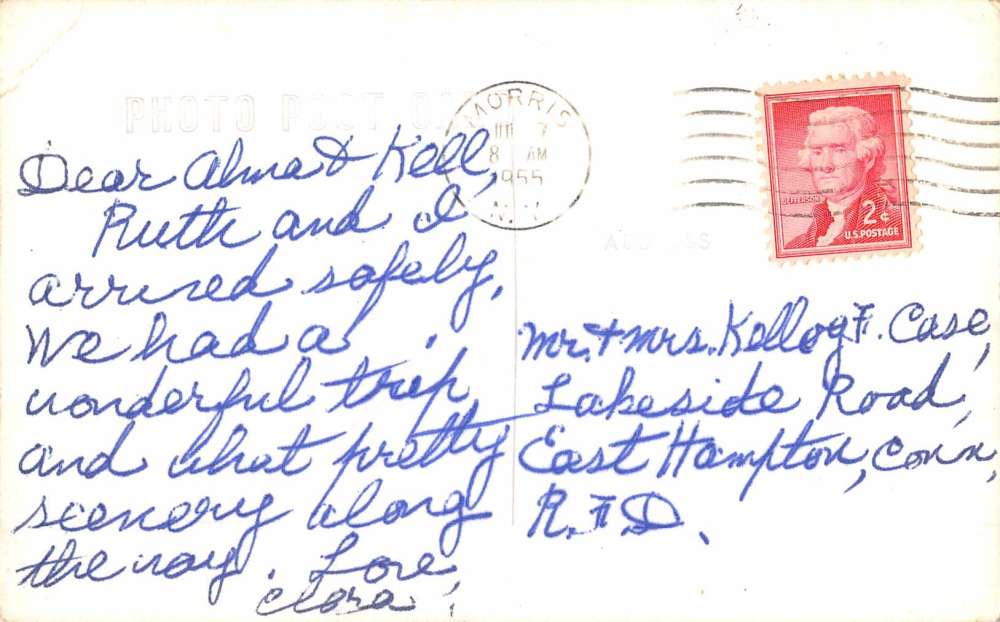 PHOTO POST CARD
MORRIS
JUL 7
8 AM
1955
N.Y.
JEFFERSON
2¢
U.S. POSTAGE
ADDRESS
Dear Alma & Kell,
Ruth and I
arrived safely,
We had a
wonderful trip
and what pretty
scenery along
the way. Love,
Clara.
Mr. & Mrs. Kellogg F. Case,
Lakeside Road,
East Hampton, Conn,
R.F.D.